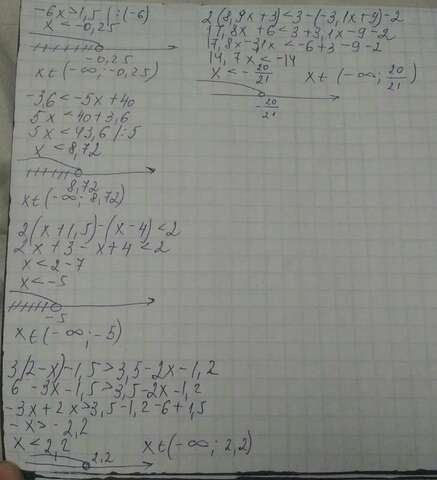 -6x>1,5 |:(-6)
x < -0,25
-0,25
x ∈ (-∞; -0,25)
-3,6 < -5x + 40
5x < 40 + 3,6
5x < 43,6 |:5
x < 8,72
8,72
x ∈ (-∞; 8,72)
2(x+1,5)-(x-4)<2
2x + 3 - x + 4 < 2
x < 2 - 7
x < -5
-5
x ∈ (-∞; -5)
3(2-x)-1,5>3,5-2x-1,2
6-3x-1,5>3,5-2x-1,2
-3x+2x>3,5-1,2-6+1,5
-x>-2,2
x < 2,2
2,2
x ∈ (-∞; 2,2)
2(8,9x+3)<3-(-3,1x+9)-2
17,8x+6<3+3,1x-9-2
17,8x-3,1x<-6+3-9-2
14,7x<-14
x < -20/21
x ∈ (-∞; 20/21)
-20/21